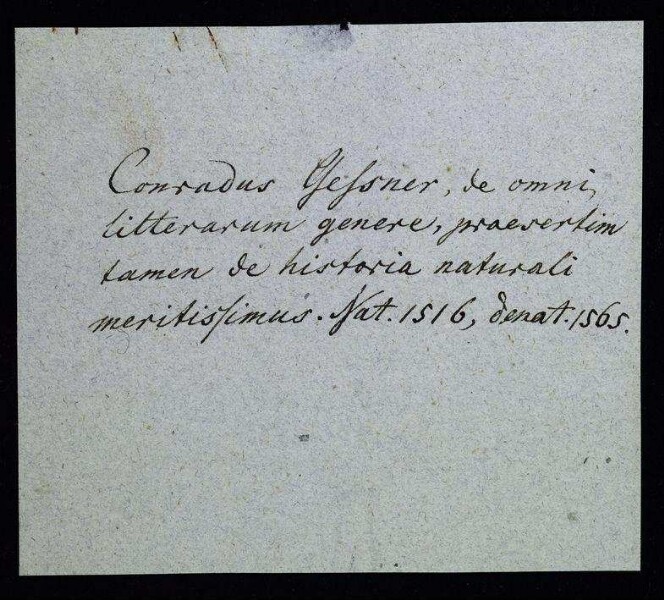 Conradus Geſsner, de omni
litterarum genere, praesertim
tamen de historia naturali
meritisſimus. Nat. 1516, denat. 1565.